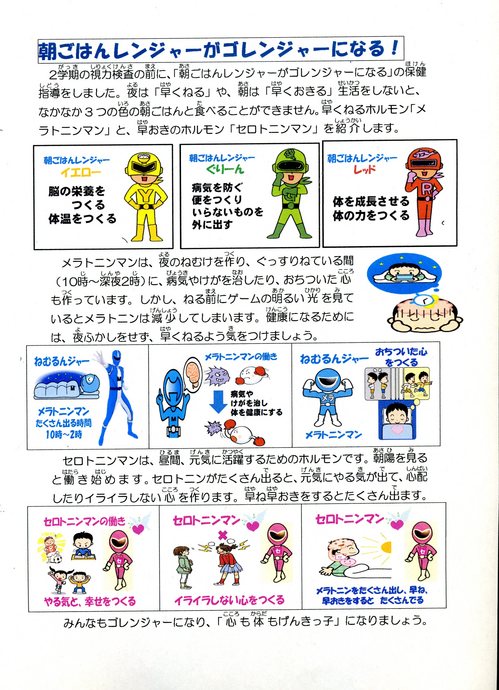 朝ごはんレンジャーがゴレンジャーになる！
2学期の視力検査の前に、「朝ごはんレンジャーがゴレンジャーになる」の保健
指導をしました。夜は「早くねる」や、朝は「早くおきる」生活をしないと、
なかなか3つの色の朝ごはんと食べることができません。早くねるホルモン「メ
ラトニンマン」と、早おきのホルモン「セロトニンマン」を紹介します。
朝ごはんレンジャー
イエロー
脳の栄養を
つくる
体温をつくる
朝ごはんレンジャー
ぐりーん
病気を防ぐ
便をつくり
いらないものを
外に出す
朝ごはんレンジャー
レッド
体を成長させる
体の力をつくる
メラトニンマンは、夜のねむけを作り、ぐっすりねている間
（10時～深夜2時）に、病気やけがを治したり、おちついた心
も作っています。しかし、ねる前にゲームの明るい光を見て
いるとメラトニンは減少してしまいます。健康になるためには
は、夜ふかしをせず、早くねるよう気をつけましょう。
ねむるんジャー
メラトニンマン
たくさん出る時間
10時～2時
メラトニンマンの働き
病気や
けがを治し
体を健康にする
ねむるンジャー
おちついた心
をつくる
メラトニンマン
セロトニンマンは、昼間、元気に活躍するためのホルモンです。朝陽を見る
と働き始めます。セロトニンがたくさん出ると、元気にやる気が出て、心配
したりイライラしない心を作ります。早ね早おきをするとたくさん出ます。
セロトニンマンの働き
やる気と、幸せをつくる
セロトニンマン
×
イライラしない心をつくる
セロトニンマン
メラトニンをたくさん出し、早ね、
早おきをすると たくさんでる
みんなもゴレンジャーになり、「心も体もげんきっ子」になりましょう。